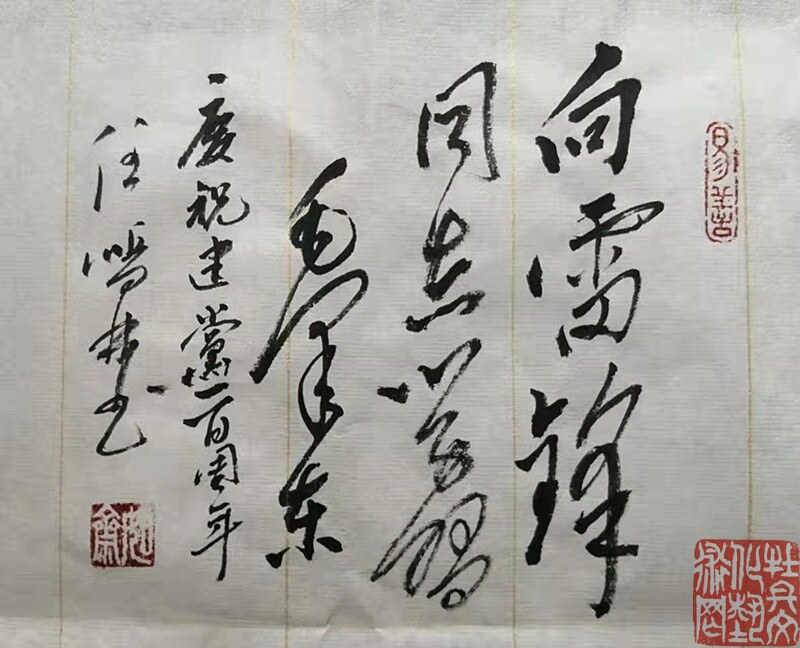 向雷锋
同志学习
毛泽东
慶祝建黨一百周年
任 书